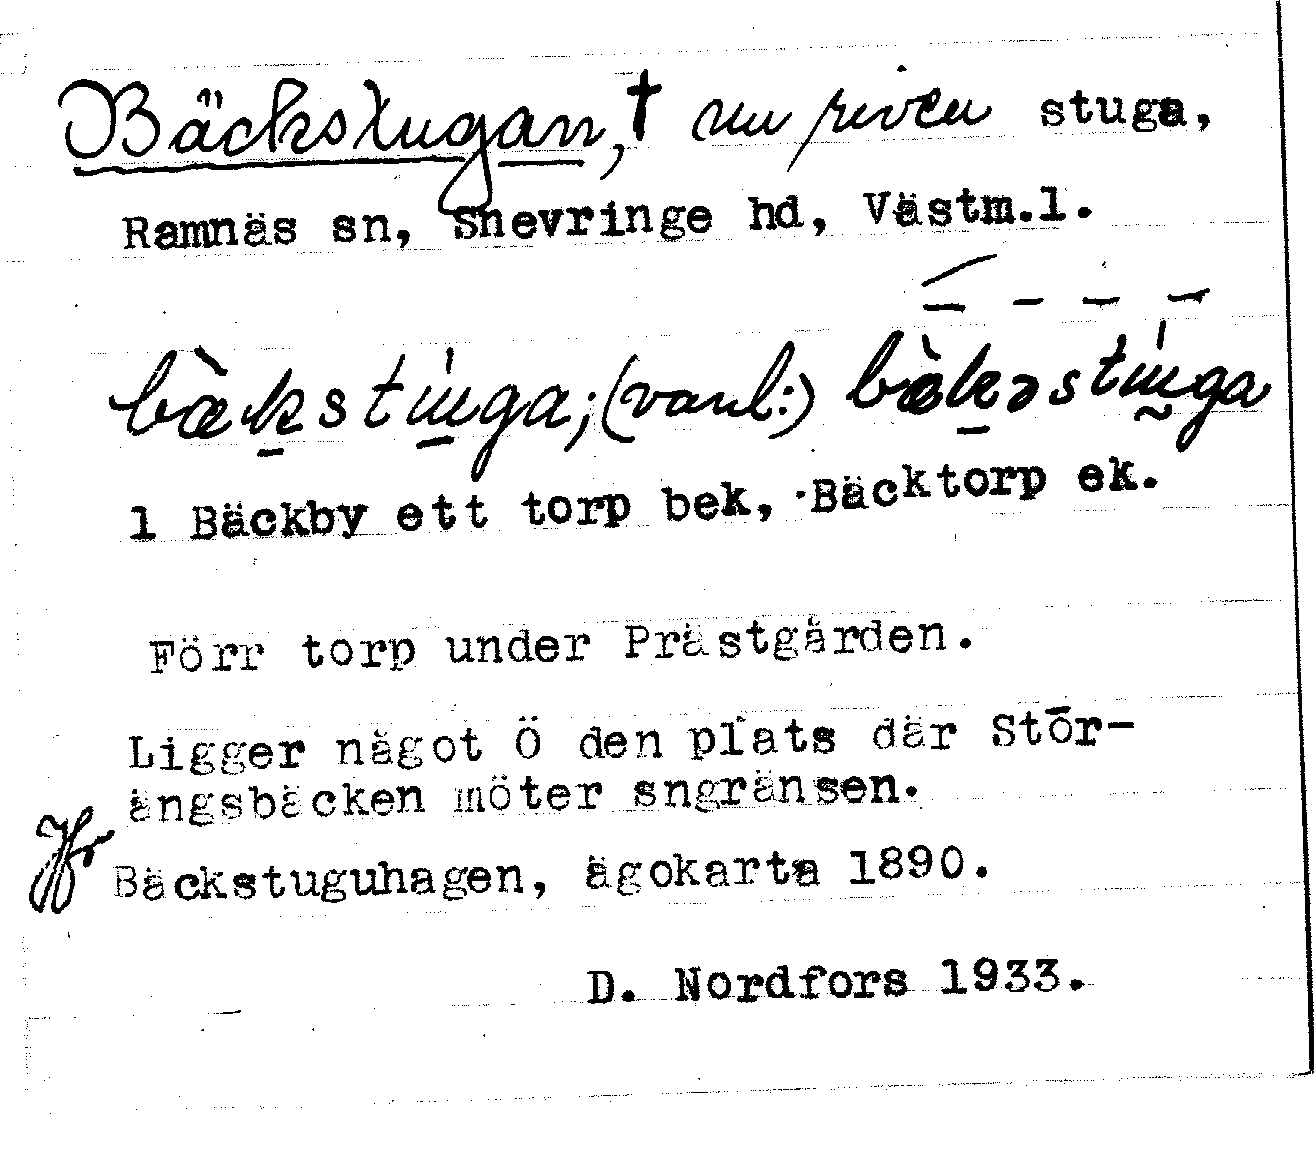 Bäckstugan, † nu riven stuga,
Ramnäs sn, Snevringe hd, Västm.l.
bæ̀kstu̍ga; (vanl:) bæ̀kəstu̍ga
1 Bäckby ett torp bek, Bäcktorp ek.
Förr torp under Prästgården.
Ligger något Ö den plats där Stor-
ängsbäcken möter sngränsen.
Jfr Bäckstuguhagen, ägokarta 1890.
D. Nordfors 1933.